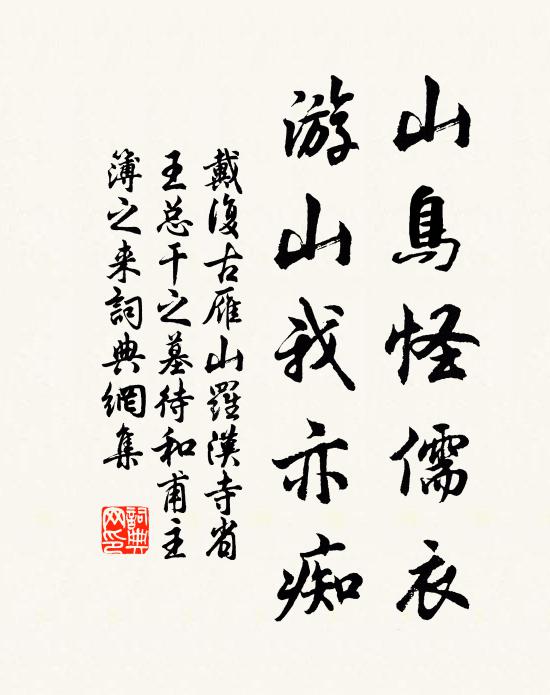 山鳥怪儒衣
游山我亦痴
戴復古雁山羅漢寺省
王总干之墓待和甫主
簿之来詞典網集
詞典
网印